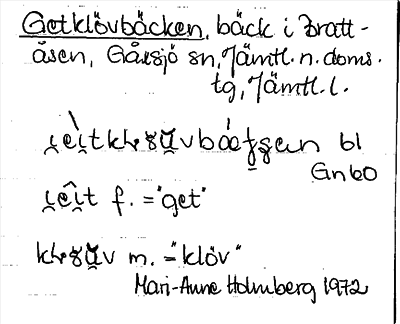 Getklövbäcken, bäck i Bratt-
åsen, Gåxsjö sn, Jämtl. n. doms.
tg, Jämtl. l.
bl
Gnbo
f. = "get"
m. = "klöv"
Mari-Anne Holmberg 1972